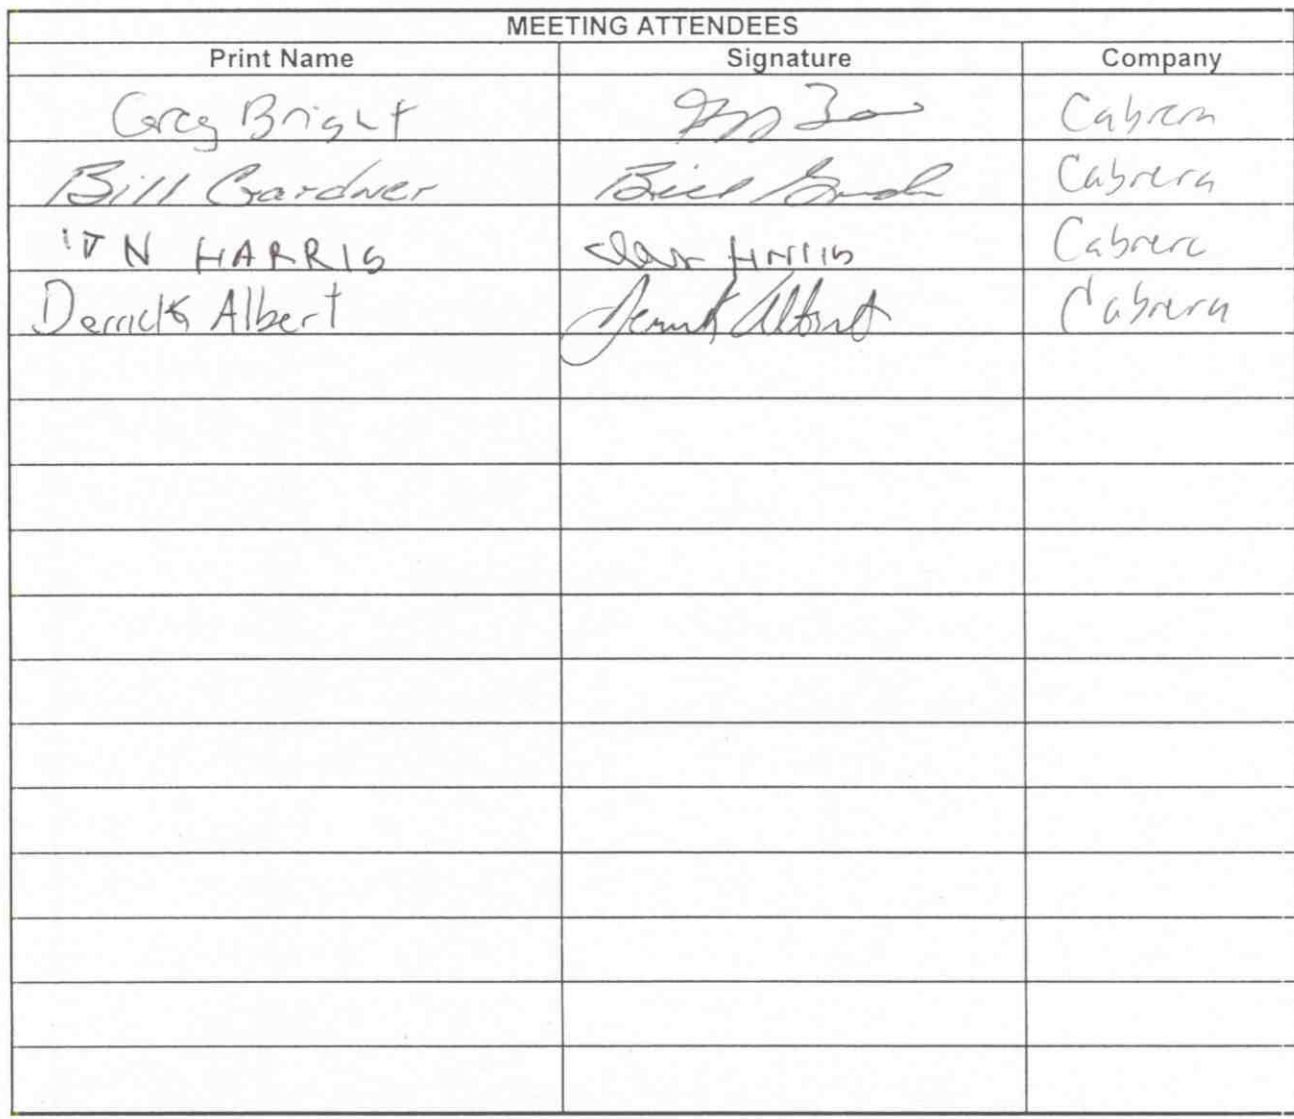 MEETING ATTENDEES
Print Name Signature Company
Greg Bright Cabrera
Bill Gardner Bill Cabrera
HARRIS Cabrera
Derrick Albert Derrick Albert Cabrera